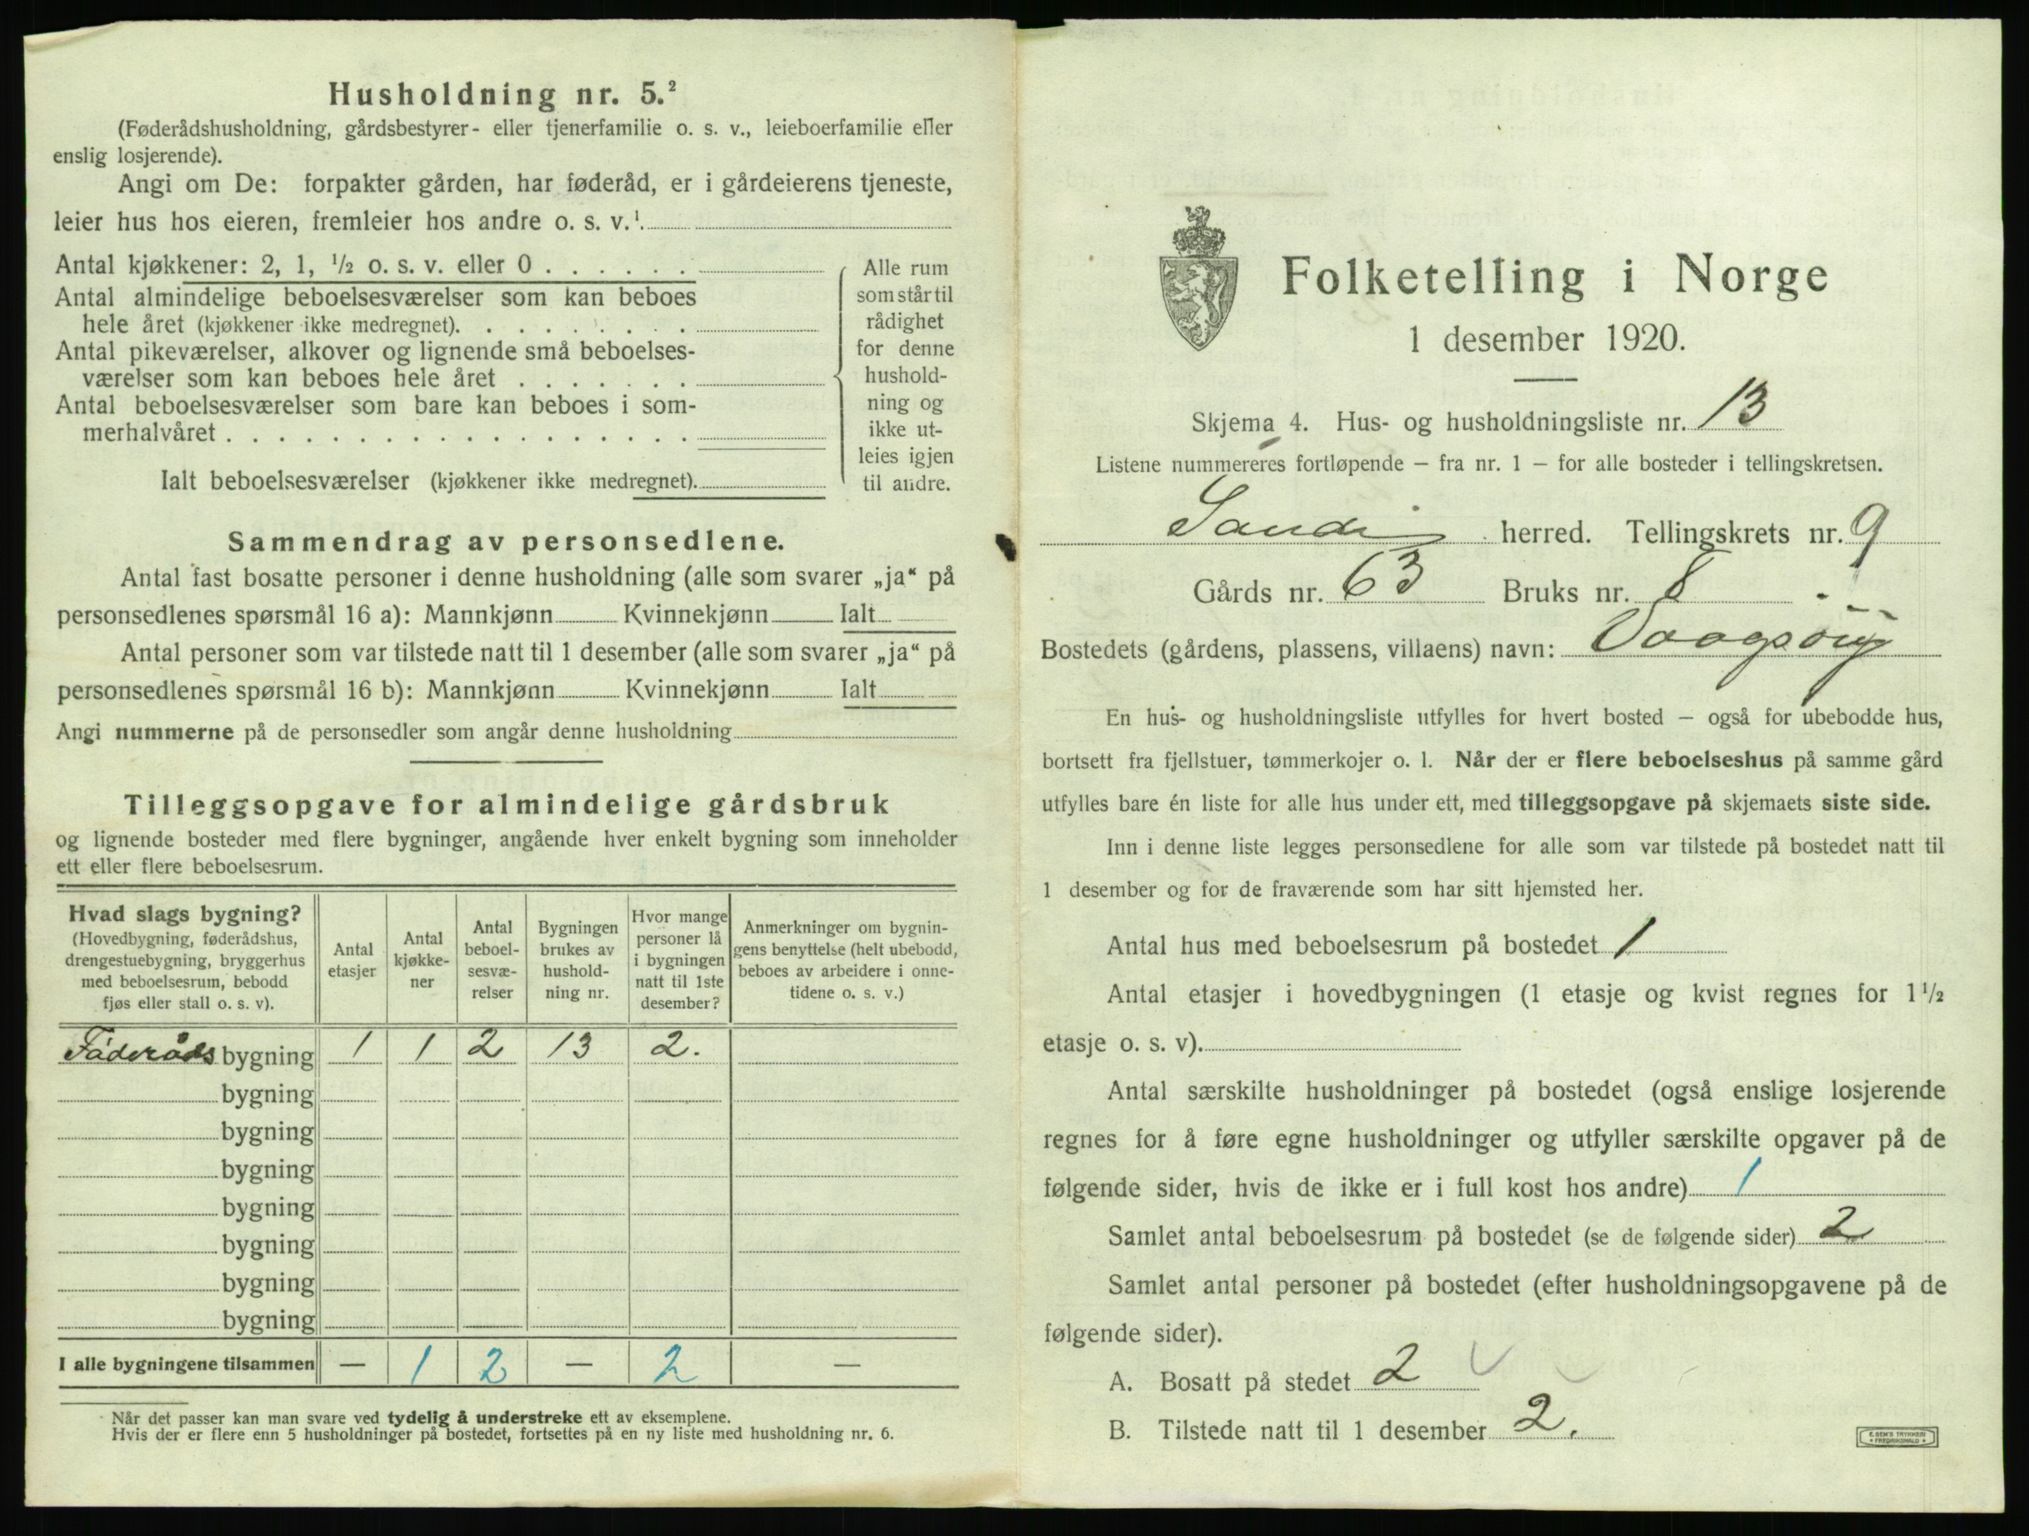 Husholdning nr. 5.²
(Føderådshusholdning, gårdsbestyrer- eller tjenerfamilie o. s. v., leieboerfamilie eller
enslig losjerende).
Angi om De: forpakter gården, har føderåd, er i gårdeierens tjeneste,
leier hus hos eieren, fremleier hos andre o. s. v.¹
Antal kjøkkener: 2, 1, ½ o. s. v. eller 0 . . . . . .
Antal almindelige beboelsesværelser som kan beboes
hele året (kjøkkener ikke medregnet). . . . . . . . .
Antal pikeværelser, alkover og lignende små beboelses-
værelser som kan beboes hele året . . . . . . .
Antal beboelsesværelser som bare kan beboes i som-
merhalvåret . . . . . . . . . . . . . . . . . .
Ialt beboelsesværelser (kjøkkener ikke medregnet).
Alle rum
som står til
rådighet
for denne
hushold-
ning og
ikke ut-
leies igjen
til andre.
Sammendrag av personsedlene.
Antal fast bosatte personer i denne husholdning (alle som svarer „ja“ på
personsedlenes spørsmål 16 a): Mannkjønn Kvinnekjønn Ialt
Antal personer som var tilstede natt til 1 desember (alle som svarer „ja“ på
personsedlenes spørsmål 16 b): Mannkjønn Kvinnekjønn Ialt
Angi nummerne på de personsedler som angår denne husholdning
Tilleggsopgave for almindelige gårdsbruk
og lignende bosteder med flere bygninger, angående hver enkelt bygning som inneholder
ett eller flere beboelsesrum.
Hvad slags bygning?
(Hovedbygning, føderådshus,
drengestuebygning, bryggerhus
med beboelsesrum, bebodd
fjøs eller stall o. s. v).
Antal
etasjer
Antal
kjøkke-
ner
Antal
beboel-
sesvæ-
relser
Bygningen
brukes av
hushold-
ning nr.
Hvor mange
personer lå
i bygningen
natt til 1ste
desember?
Anmerkninger om bygnin-
gens benyttelse (helt ubebodd,
beboes av arbeidere i onne-
tidene o. s. v.)
Føderåds bygning 1 1 2 13 2.
bygning
bygning
bygning
bygning
bygning
bygning
bygning
I alle bygningene tilsammen — 1 2 — 2 —
Når det passer kan man svare ved tydelig å understreke ett av eksemplene.
Hvis der er flere enn 5 husholdninger på bostedet, fortsettes på en ny liste med husholdning nr. 6.
Folketelling i Norge
1 desember 1920.
Skjema 4. Hus- og husholdningsliste nr. 13
Listene nummereres fortløpende – fra nr. 1 – for alle bosteder i tellingskretsen.
herred. Tellingskrets nr. 9
Gårds nr. 63 Bruks nr. 8
Bostedets (gårdens, plassens, villaens) navn:
En hus- og husholdningsliste utfylles for hvert bosted – også for ubebodde hus,
bortsett fra fjellstuer, tømmerkojer o. l. Når der er flere beboelseshus på samme gård
utfylles bare én liste for alle hus under ett, med tilleggsopgave på skjemaets siste side.
Inn i denne liste legges personsedlene for alle som var tilstede på bostedet natt til
1 desember og for de fraværende som har sitt hjemsted her.
Antal hus med beboelsesrum på bostedet 1
Antal etasjer i hovedbygningen (1 etasje og kvist regnes for 1½
etasje o. s. v).
Antal særskilte husholdninger på bostedet (også enslige losjerende
regnes for å føre egne husholdninger og utfyller særskilte opgaver på de
følgende sider, hvis de ikke er i full kost hos andre) 1
Samlet antal beboelsesrum på bostedet (se de følgende sider) 2
Samlet antal personer på bostedet (efter husholdningsopgavene på de
følgende sider).
A. Bosatt på stedet 2
B. Tilstede natt til 1 desember 2.